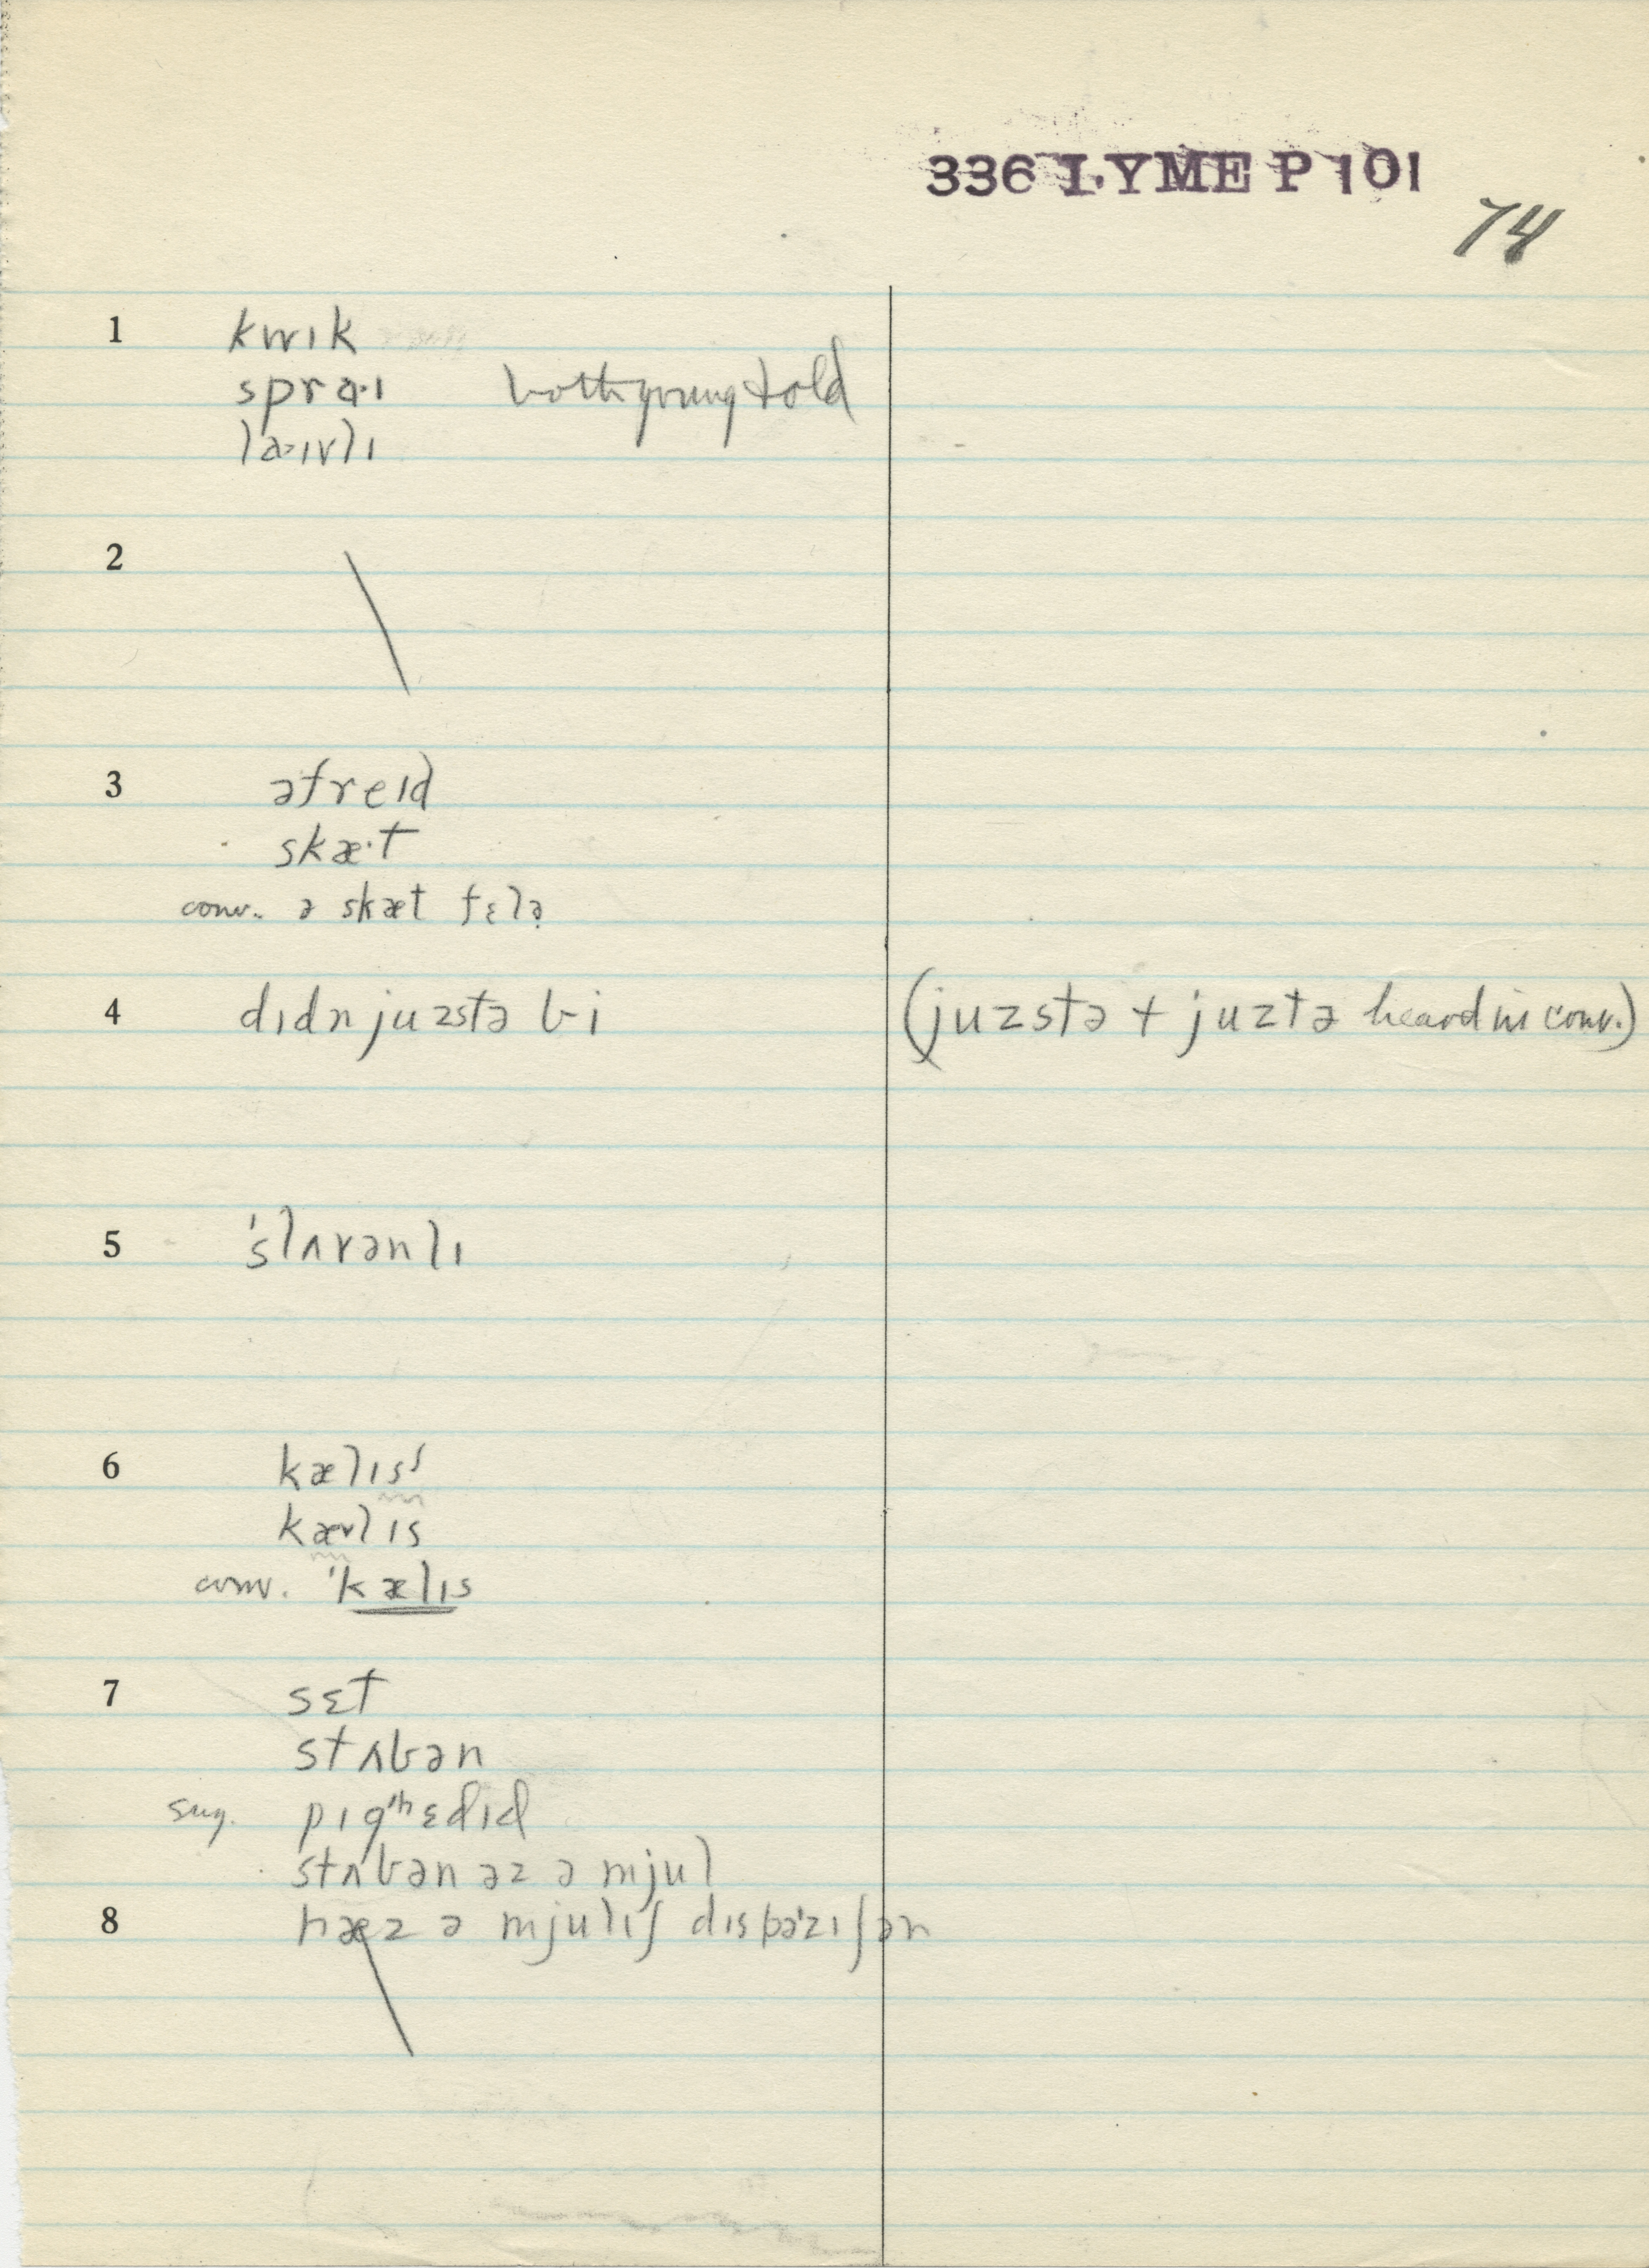 336 LYME P 101
74
1 kwɪk
sprɑ·ɪ both young + old
laɪvlɪ
2
3 əfreɪd
skæ·t
conv. ə skæt fɛlə
4 dɪdn juzstə bi (juzstə + juztə heard in conv.)
5 'slʌvənlɪ
6 kælɪsˢ
kævlɪs
conv. 'kælɪs
7 sɛt
stʌbən
sug. pɪg'hɛdɪd
stʌbən əz ə mjul
8 hæz ə mjulɪʃ dɪspə'zɪʃən